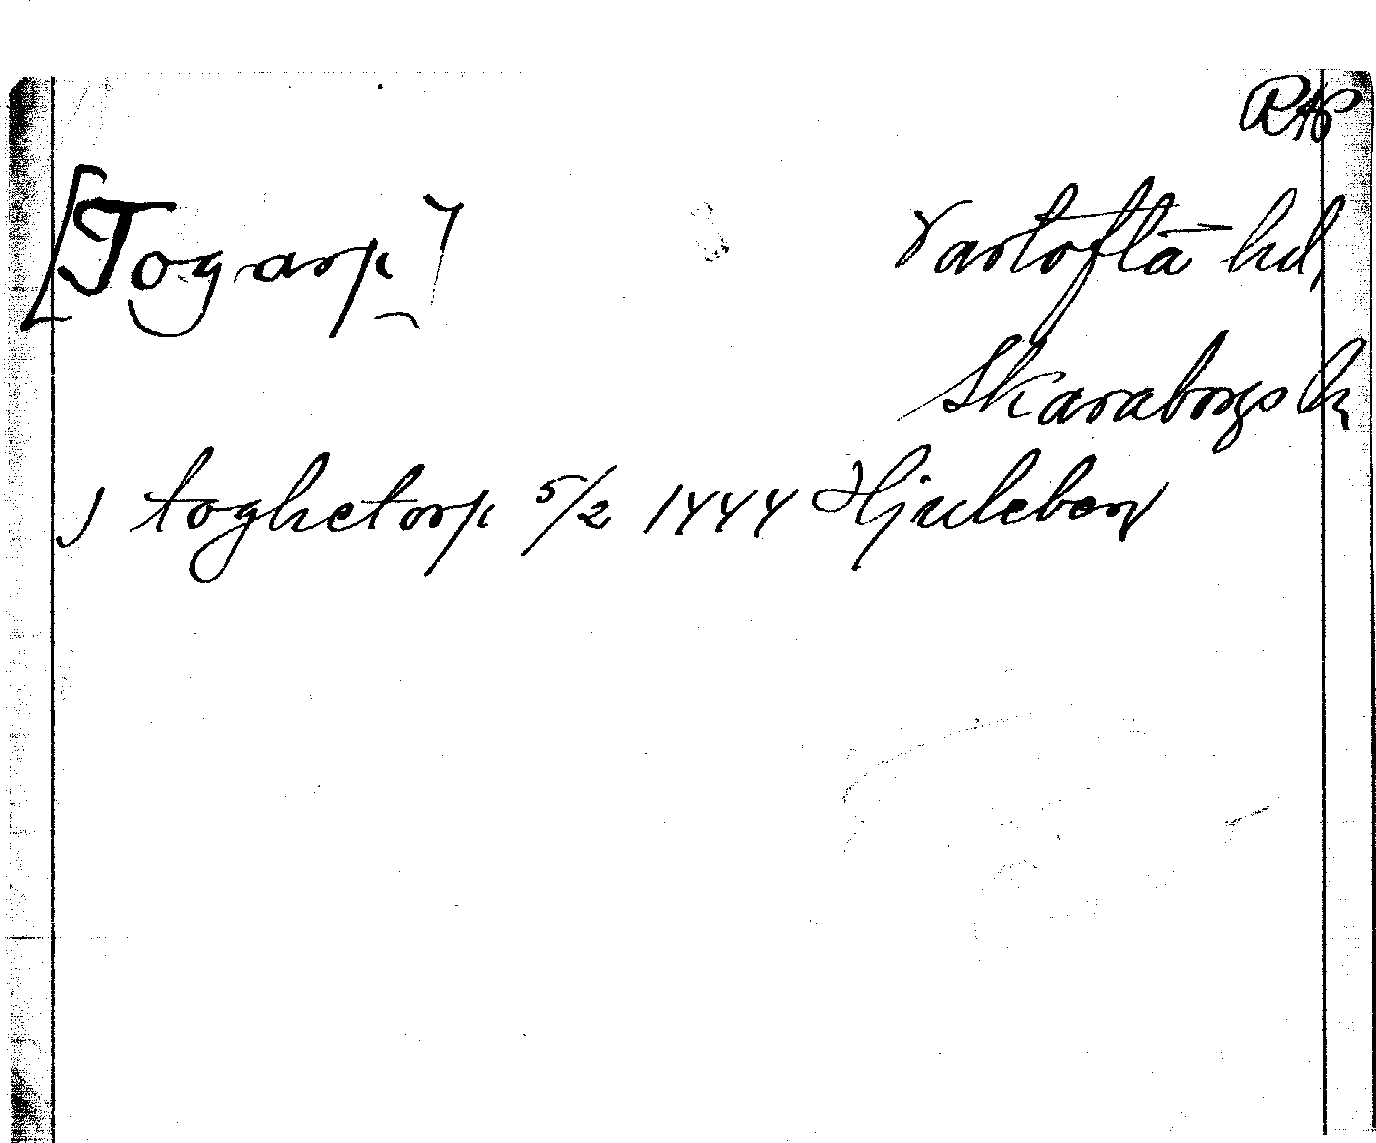 RAP
[Togarp]
Vartofta hd,
Skaraborgs l.
J toghetorp 5/2 1444 Hjuleberg